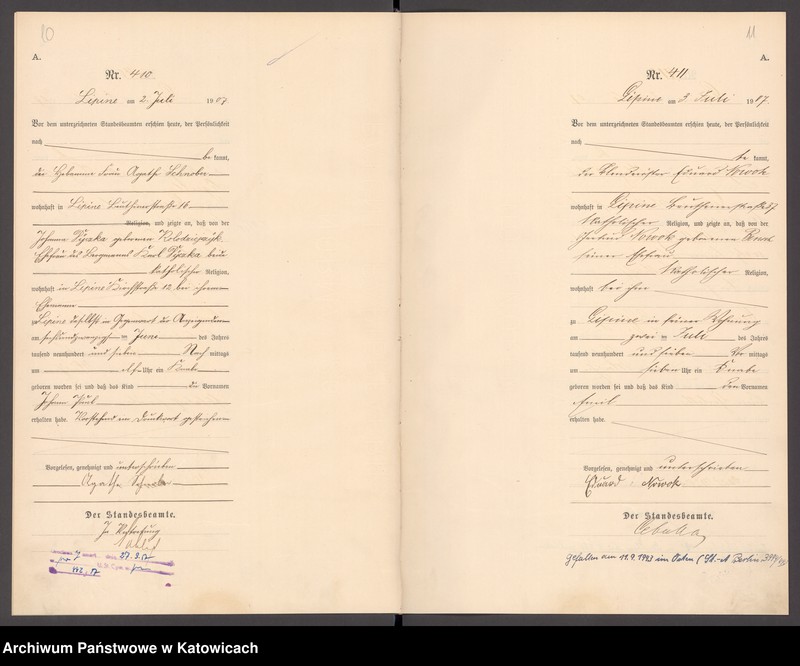 10
A.
Nr. 410
Lipine am 2. Juli 1907
Vor dem unterzeichneten Standesbeamten erschien heute, der Persönlichkeit
nach
be kannt,
die Hebamme Frau Agathe Schnober
wohnhaft in Lipine Beuthenerstraße 16
Religion, und zeigte an, daß von der
Johanna geborenen Kolodziejczyk
Ehefrau des Bergmanns Karl beide
katholischer Religion,
wohnhaft in Lipine Kirchstraße 12 bei ihrem
Ehemanne
zu Lipine daselbst in Gegenwart der Anzeigenden
am Juni des Jahres
tausend neunhundert und sieben Nach mittags
um elf Uhr ein Knabe
geboren worden sei und daß das Kind die Vornamen
Johann Paul
erhalten habe. Vorstehend ein Druckwort gestrichen
Vorgelesen, genehmigt und unterschrieben
Agathe Schnober
Der Standesbeamte.
In Vertretung
11
A.
Nr. 411
Lipine am 3. Juli 1907.
Vor dem unterzeichneten Standesbeamten erschien heute, der Persönlichkeit
nach
be kannt,
der Eduard Nowok
wohnhaft in Lipine Beuthenerstraße 27
katholischer Religion, und zeigte an, daß von der
Nowok geborenen
seiner Ehefrau
katholischer Religion,
wohnhaft bei ihm
zu Lipine in seiner Wohnung
am zwei ten Juli des Jahres
tausend neunhundert und sieben Vor mittags
um sieben Uhr ein Knabe
geboren worden sei und daß das Kind den Vornamen
Emil
erhalten habe.
Vorgelesen, genehmigt und unterschrieben
Eduard Nowok
Der Standesbeamte.
Cebulla
Gefallen am 11.9.1943 im Osten (St.-A Berlin
Archiwum Państwowe w Katowicach